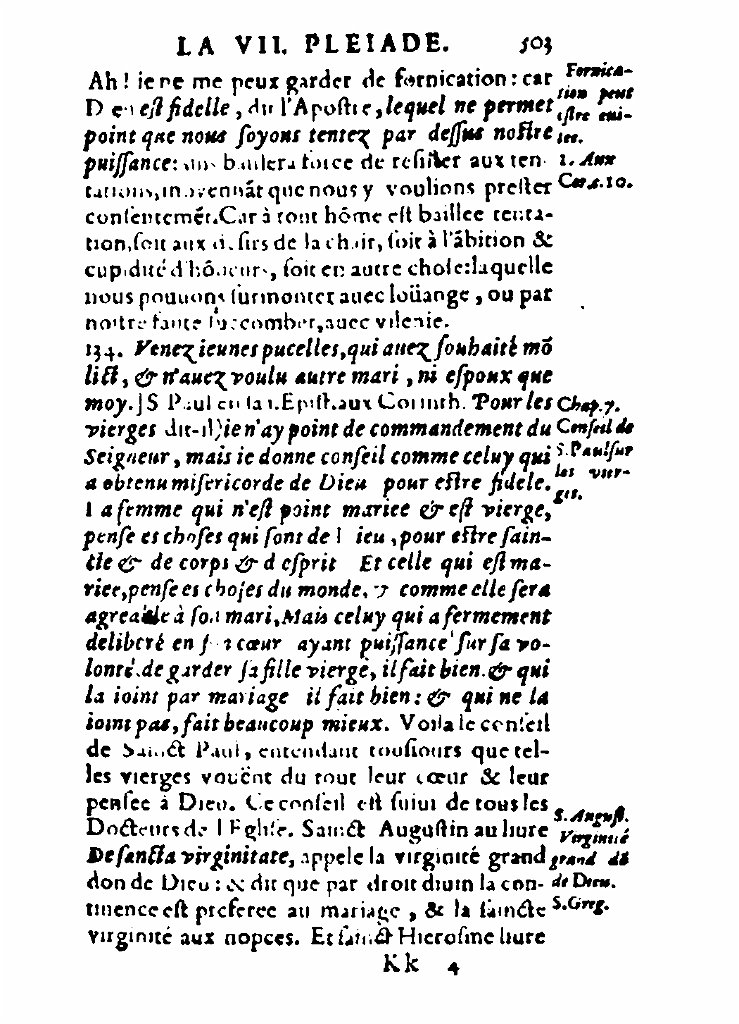 LA VII. PLEIADE. 503
Ah! ie ne me peux garder de fornication: car
Dieu eſt fidelle, dit l'Apoſtre, lequel ne permet
point que nous ſoyons tentez par deſſus noſtre
puiſſance: baillera force de reſiſter aux ten-
tations, moyennāt que nous y voulions preſter
conſentemēt. Car à tout hōme eſt baillee tenta-
tion, ſoit aux deſirs de la chair, ſoit à l'ābition &
cupidité d'hōneurs, ſoit en autre choſe: laquelle
nous pouuons ſurmonter auec loüange, ou par
noſtre faute ſuccomber, auec vilenie.
134. Venez ieunes pucelles, qui auez ſouhaité mō
lict, & n'auez voulu autre mari, ni eſpoux que
moy.] S Paul en la 1. Epiſt. aux Corinth. Pour les
vierges dit-il) ie n'ay point de commandement du
Seigneur, mais ie donne conſeil comme celuy qui
a obtenu miſericorde de Dieu pour eſtre fidele.
La femme qui n'eſt point mariee & eſt vierge,
penſe es choſes qui ſont de Dieu, pour eſtre ſain-
cte & de corps & d'eſprit Et celle qui eſt ma-
riee, penſe es choſes du monde, & comme elle ſera
agreable à ſon mari, Mais celuy qui a fermement
deliberé en ſon cœur ayant puiſſance ſur ſa vo-
lonté, de garder ſa fille vierge, il fait bien. & qui
la ioint par mariage il fait bien: & qui ne la
ioint pas, fait beaucoup mieux. Voila le conſeil
de Sainct Paul, entendant touſiours que tel-
les vierges vouënt du tout leur cœur & leur
penſee à Dieu. Ce conſeil eſt ſuiui de tous les
Docteurs de l'Egliſe. Sainct Auguſtin au liure
De ſancta virginitate, appele la virginité grand
don de Dieu: & dit que par droit diuin la con-
tinence eſt preferee au mariage, & la ſaincte
virginité aux nopces. Et ſainct Hieroſme liure
Kk 4
Fornica-
tion peut
eſtre eui-
tee.
1. Aux
Cor. 10.
Chap. 7.
Conſeil de
S. Paul ſur
les vier-
ges.
S. Auguſt.
Virginité
grand dō
de Dieu.
S. Greg.